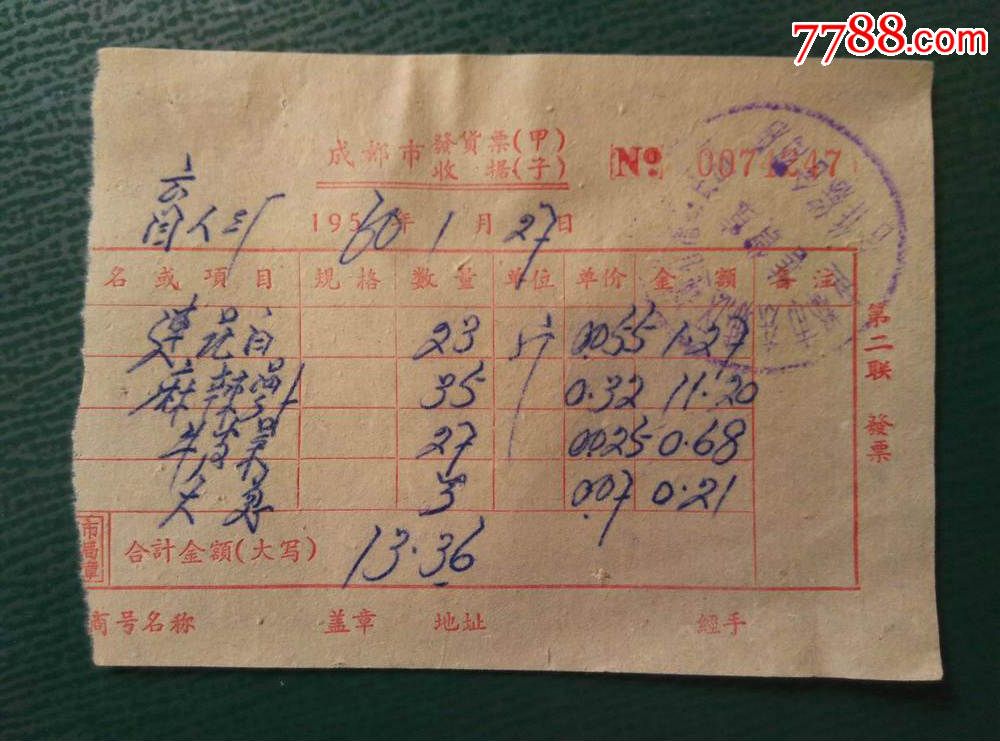 7788.com
成都市發貨票(甲)
收據(子)
No 0071247
1960年1月27日
名或項目 規格 数量 单位 单价 金額 备注
莲花白 23 斤 0.055 1.27
麻辣 35 0.32 11.20
牛 27 0.025 0.68
3 0.07 0.21
合計金額(大写) 13.36
市局章
商号名称 盖章 地址 經手
第二联 發票